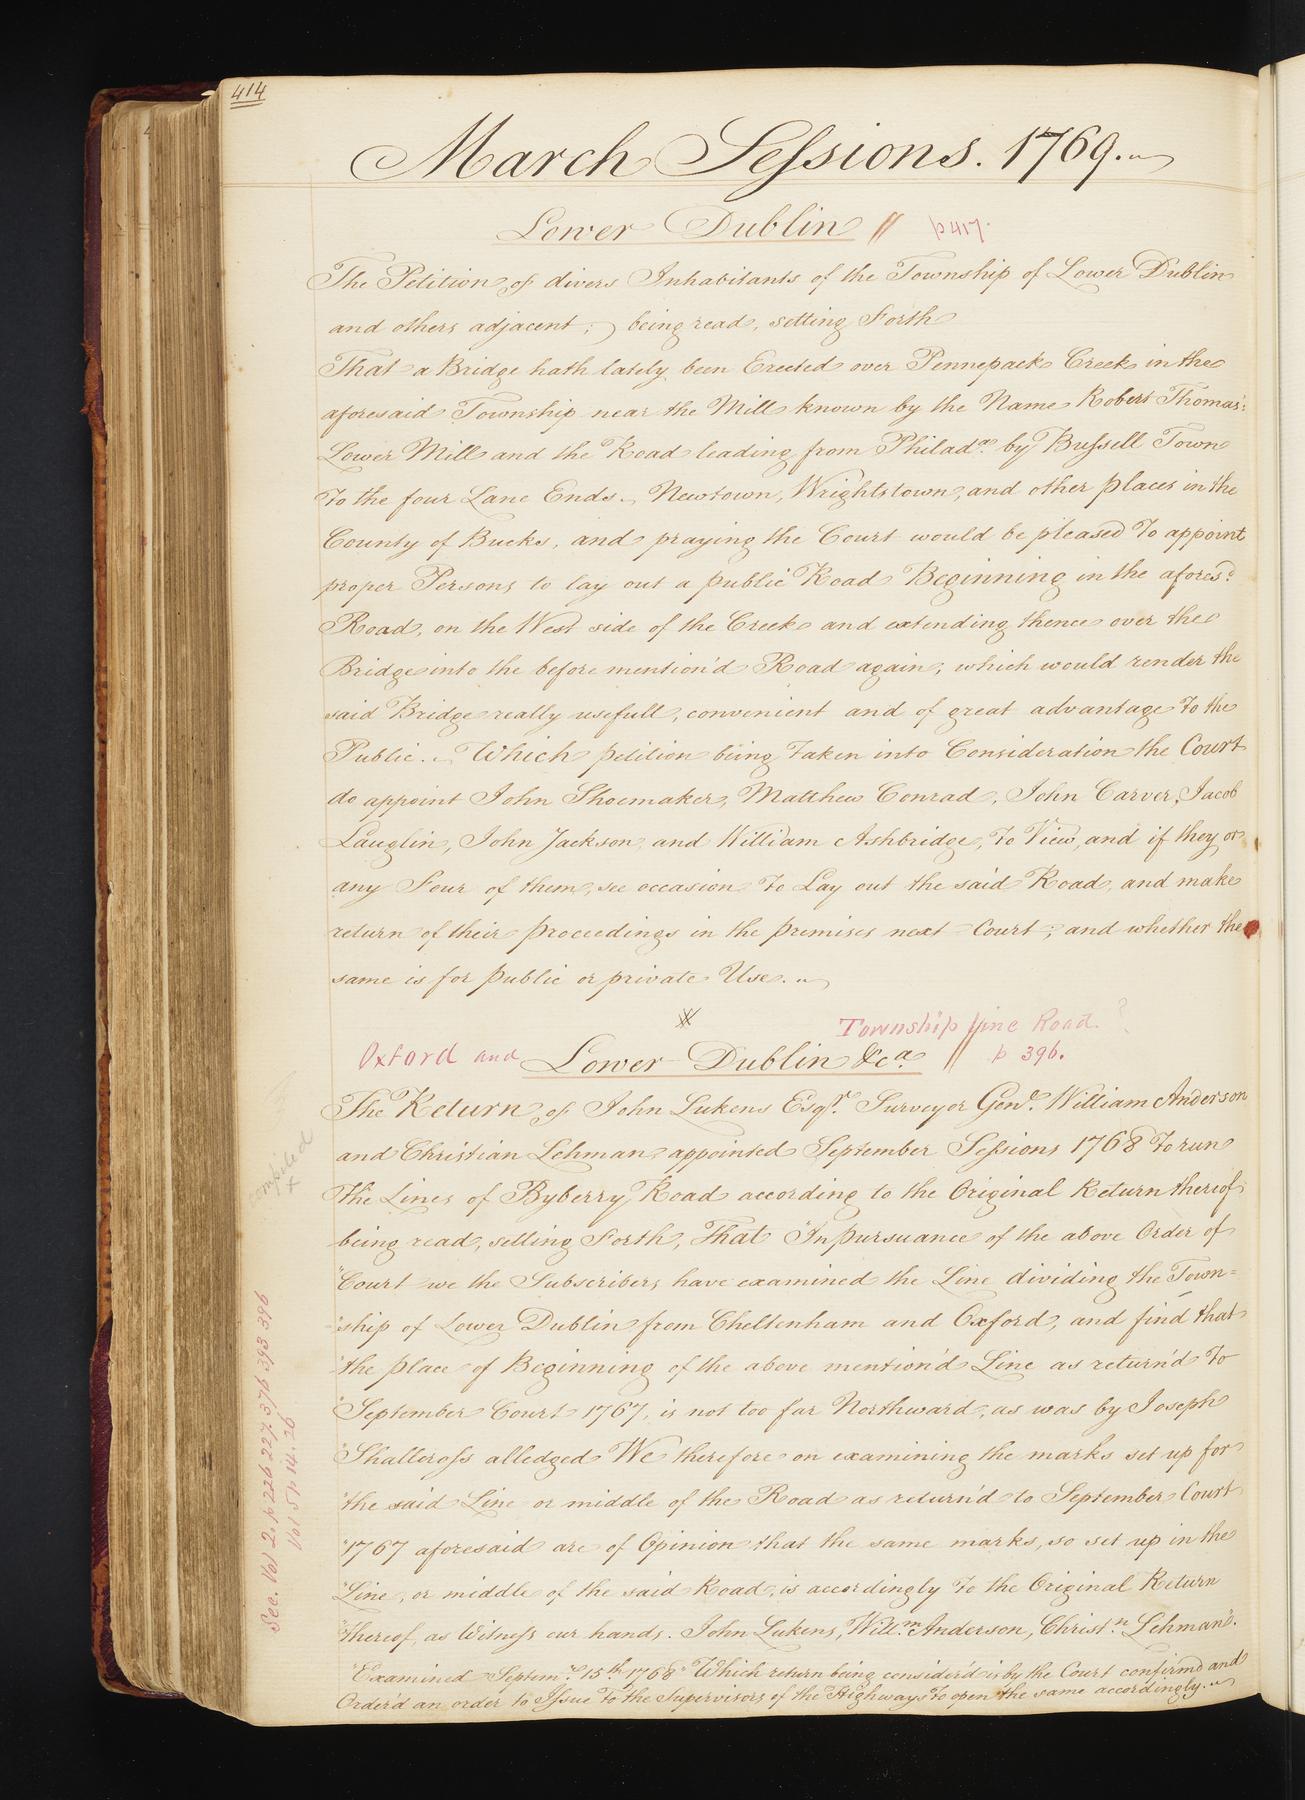 414
March Sessions. 1769.
Lower Dublin // p 417.
The Petition of divers Inhabitants of the Township of Lower Dublin
and others adjacent; being read, setting Forth
That a Bridge hath lately been Erected over Pennepack Creek in the
aforesaid Township near the Mill known by the Name Robert Thomas's
Lower Mill and the Road leading from Philada. by Bussell Town
to the four Lane Ends, Newtown, Wrightstown, and other places in the
County of Bucks, and praying the Court would be pleased to appoint
proper Persons to lay out a public Road Beginning in the aforesd.
Road, on the West side of the Creek and extending thence over the
Bridge into the before mention'd Road again; which would render the
said Bridge really usefull, convenient and of great advantage to the
Public. Which petition being taken into Consideration the Court
do appoint John Shoemaker, Matthew Conrad, John Carver, Jacob
Lauglin, John Jackson and William Ashbridge, to View, and if they or
any Four of them, see occasion to Lay out the said Road, and make
return of their proceedings in the premises next Court; and whether the
same is for public or private Use.
Township line Road. ?
Oxford and Lower Dublin &ca. // p 396.
The Return of John Lukens Esqr. Surveyor Genl. William Anderson
and Christian Lehman appointed September Sessions 1768 to run
the Lines of Byberry Road according to the Original Return thereof
being read, setting Forth, That "In pursuance of the above Order of
"Court we the Subscribers have examined the Line dividing the Town=
"ship of Lower Dublin from Cheltenham and Oxford, and find that
"the place of Beginning of the above mention'd Line as return'd to
"September Court 1767, is not too far Northward, as was by Joseph
"Shallcross alledged We therefore on examining the marks set up for
"the said Line or middle of the Road as return'd to September Court
"1767 aforesaid are of Opinion that the same marks, so set up in the
"Line, or middle of the said Road, is accordingly to the Original Return
"thereof, as Witness our hands. John Lukens, Willm. Anderson, Christn. Lehman".
"Examined Septemr. 15th 1768" Which return being consider'd is by the Court confirmd and
Order'd an order to Issue to the Supervisors of the Highways to open the same accordingly.
See. Vol 2. p 226 227 376 393 396
Vol 5 p 14. 26